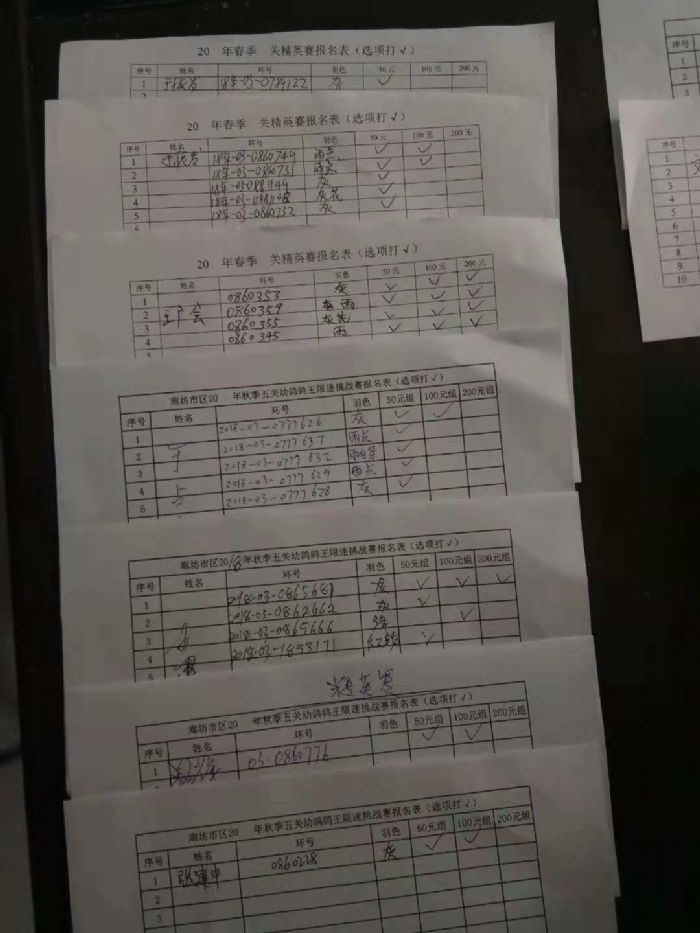 20 年春季 关精英赛报名表（选项打√）
序号 姓名 环号 羽色 50元 100元 200元
1 18年-03-0784122 灰 √
2
20 年春季 关精英赛报名表（选项打√）
序号 姓名 环号 羽色 50元 100元 200元
1 18年-03-0860749 雨点 √ √
2 18年-03-0860731 雨点 √ √
3 灰 √
4 灰花 √
5 18年-03-0860732 灰 √
6
20 年春季 关精英赛报名表（选项打√）
序号 姓名 环号 羽色 50元 100元 200元
1 0860353 灰 √ √ √
2 0860359 雨 √ √ √
3 0860355 灰花 √ √ √
4 0860345 雨 √ √ √
5
廊坊市区20 年秋季五关幼鸽鸽王限速挑战赛报名表（选项打√）
序号 姓名 环号 羽色 50元组 100元组 200元组
1 2018-03-0777626 灰 √ √
2 2018-03-0777637 雨点 √
3 2018-03-0777632 √
4 2018-03-0777629 雨点 √
5 2018-03-0777628 灰 √
廊坊市区2018年秋季五关幼鸽鸽王限速挑战赛报名表（选项打√）
序号 姓名 环号 羽色 50元组 100元组 200元组
1 2018-03-0865681 灰 √ √ √
2 2018-03-0862662 灰 √
3 2018-03-0865666 绛 √
4 2018-03-1853171 红绛 √
5
精英赛
廊坊市区20 年秋季五关幼鸽鸽王限速挑战赛报名表（选项打√）
序号 姓名 环号 羽色 50元组 100元组 200元组
1 03-0860776 √ √
廊坊市区20 年秋季五关幼鸽鸽王限速挑战赛报名表（选项打√）
序号 姓名 环号 羽色 50元组 100元组 200元组
1 张建中 0860228 灰 √ √
2
3
序号
1
2
3
4
5
6
7
8
9
10